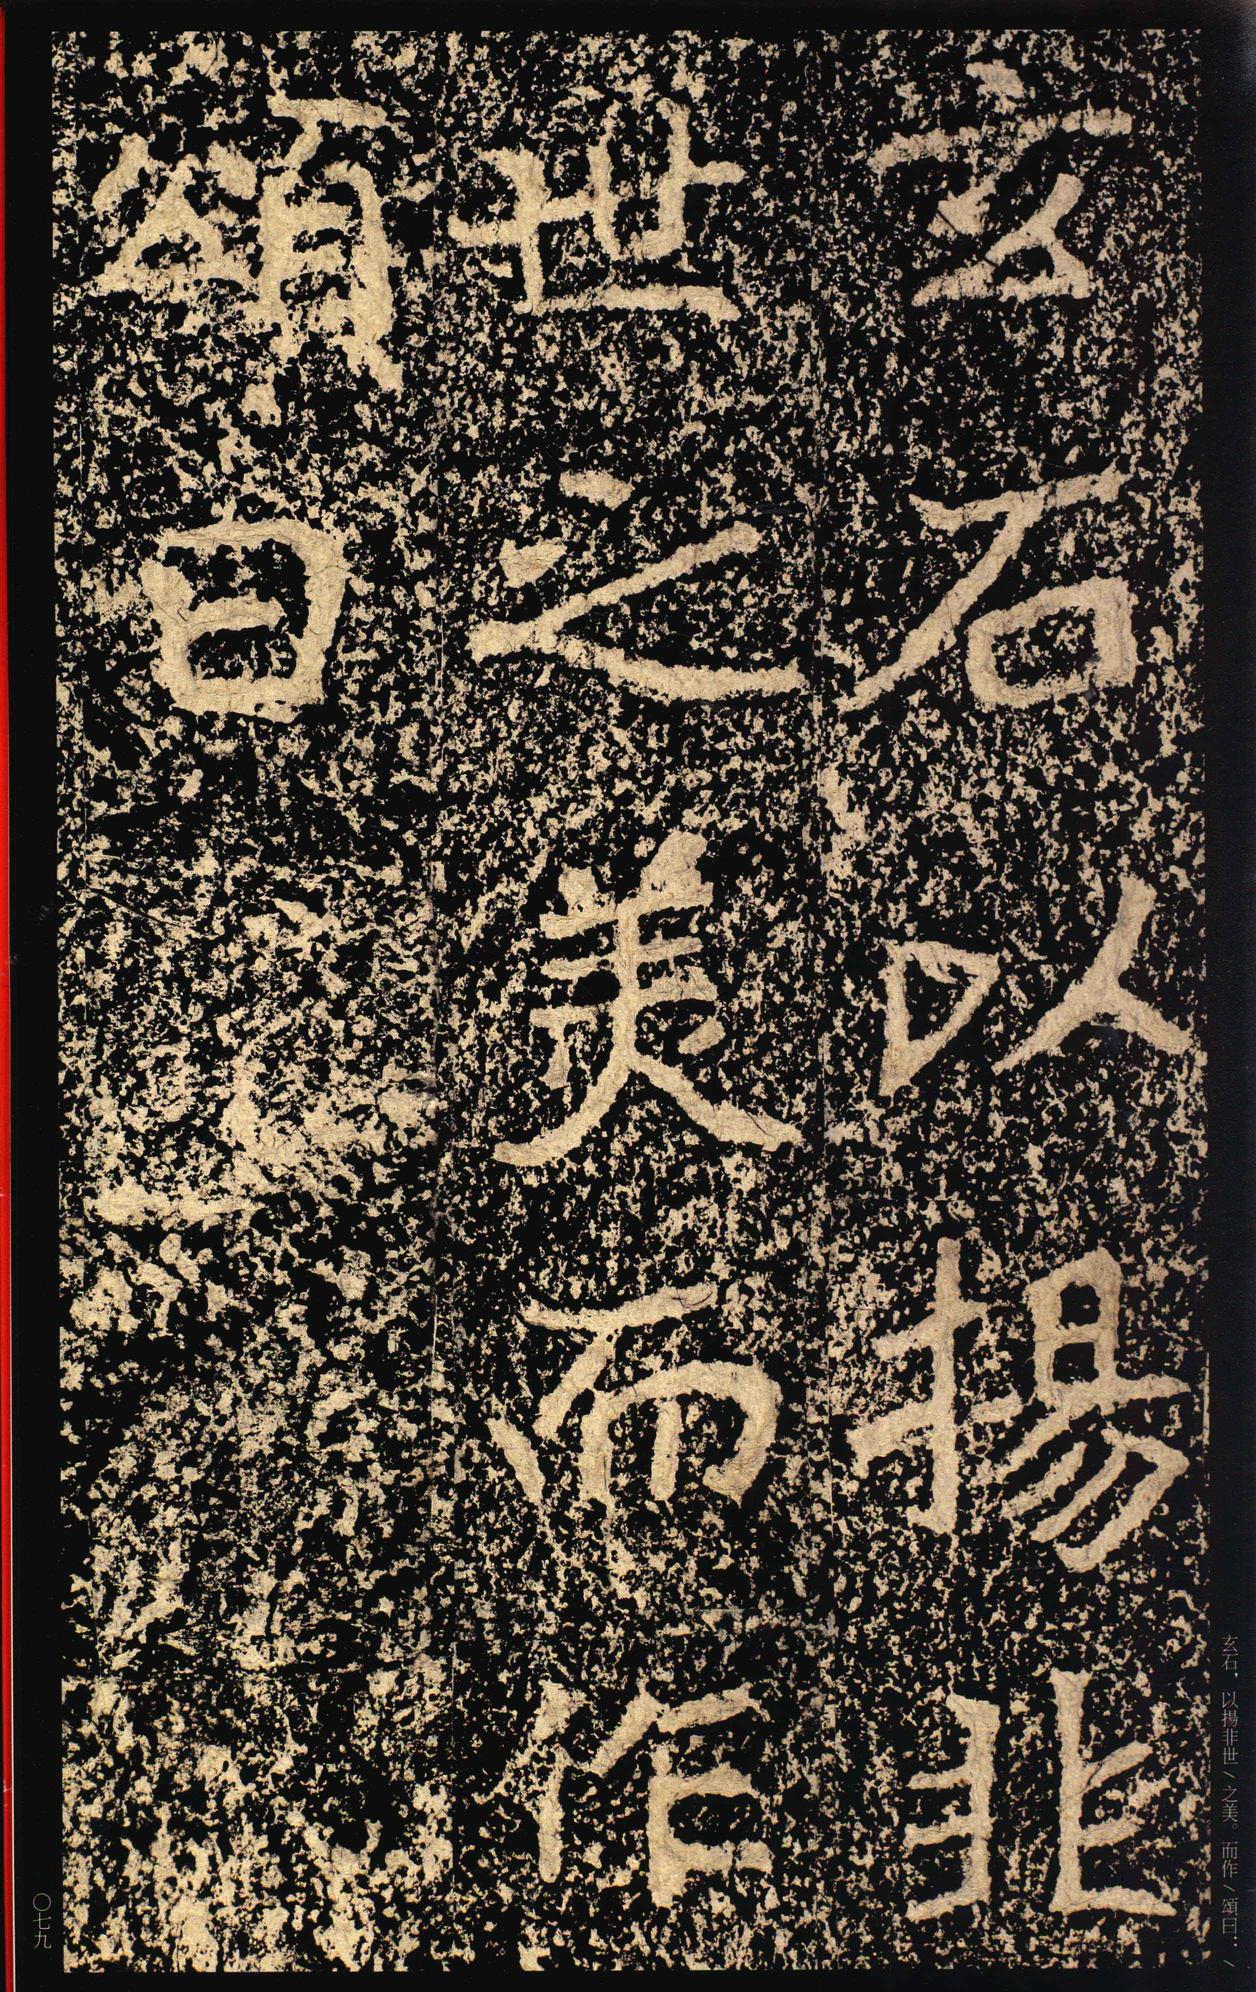 玄石以揚非
世之美而作
頌曰
玄石，以揚非世／之美。而作／頌曰：／
〇七九